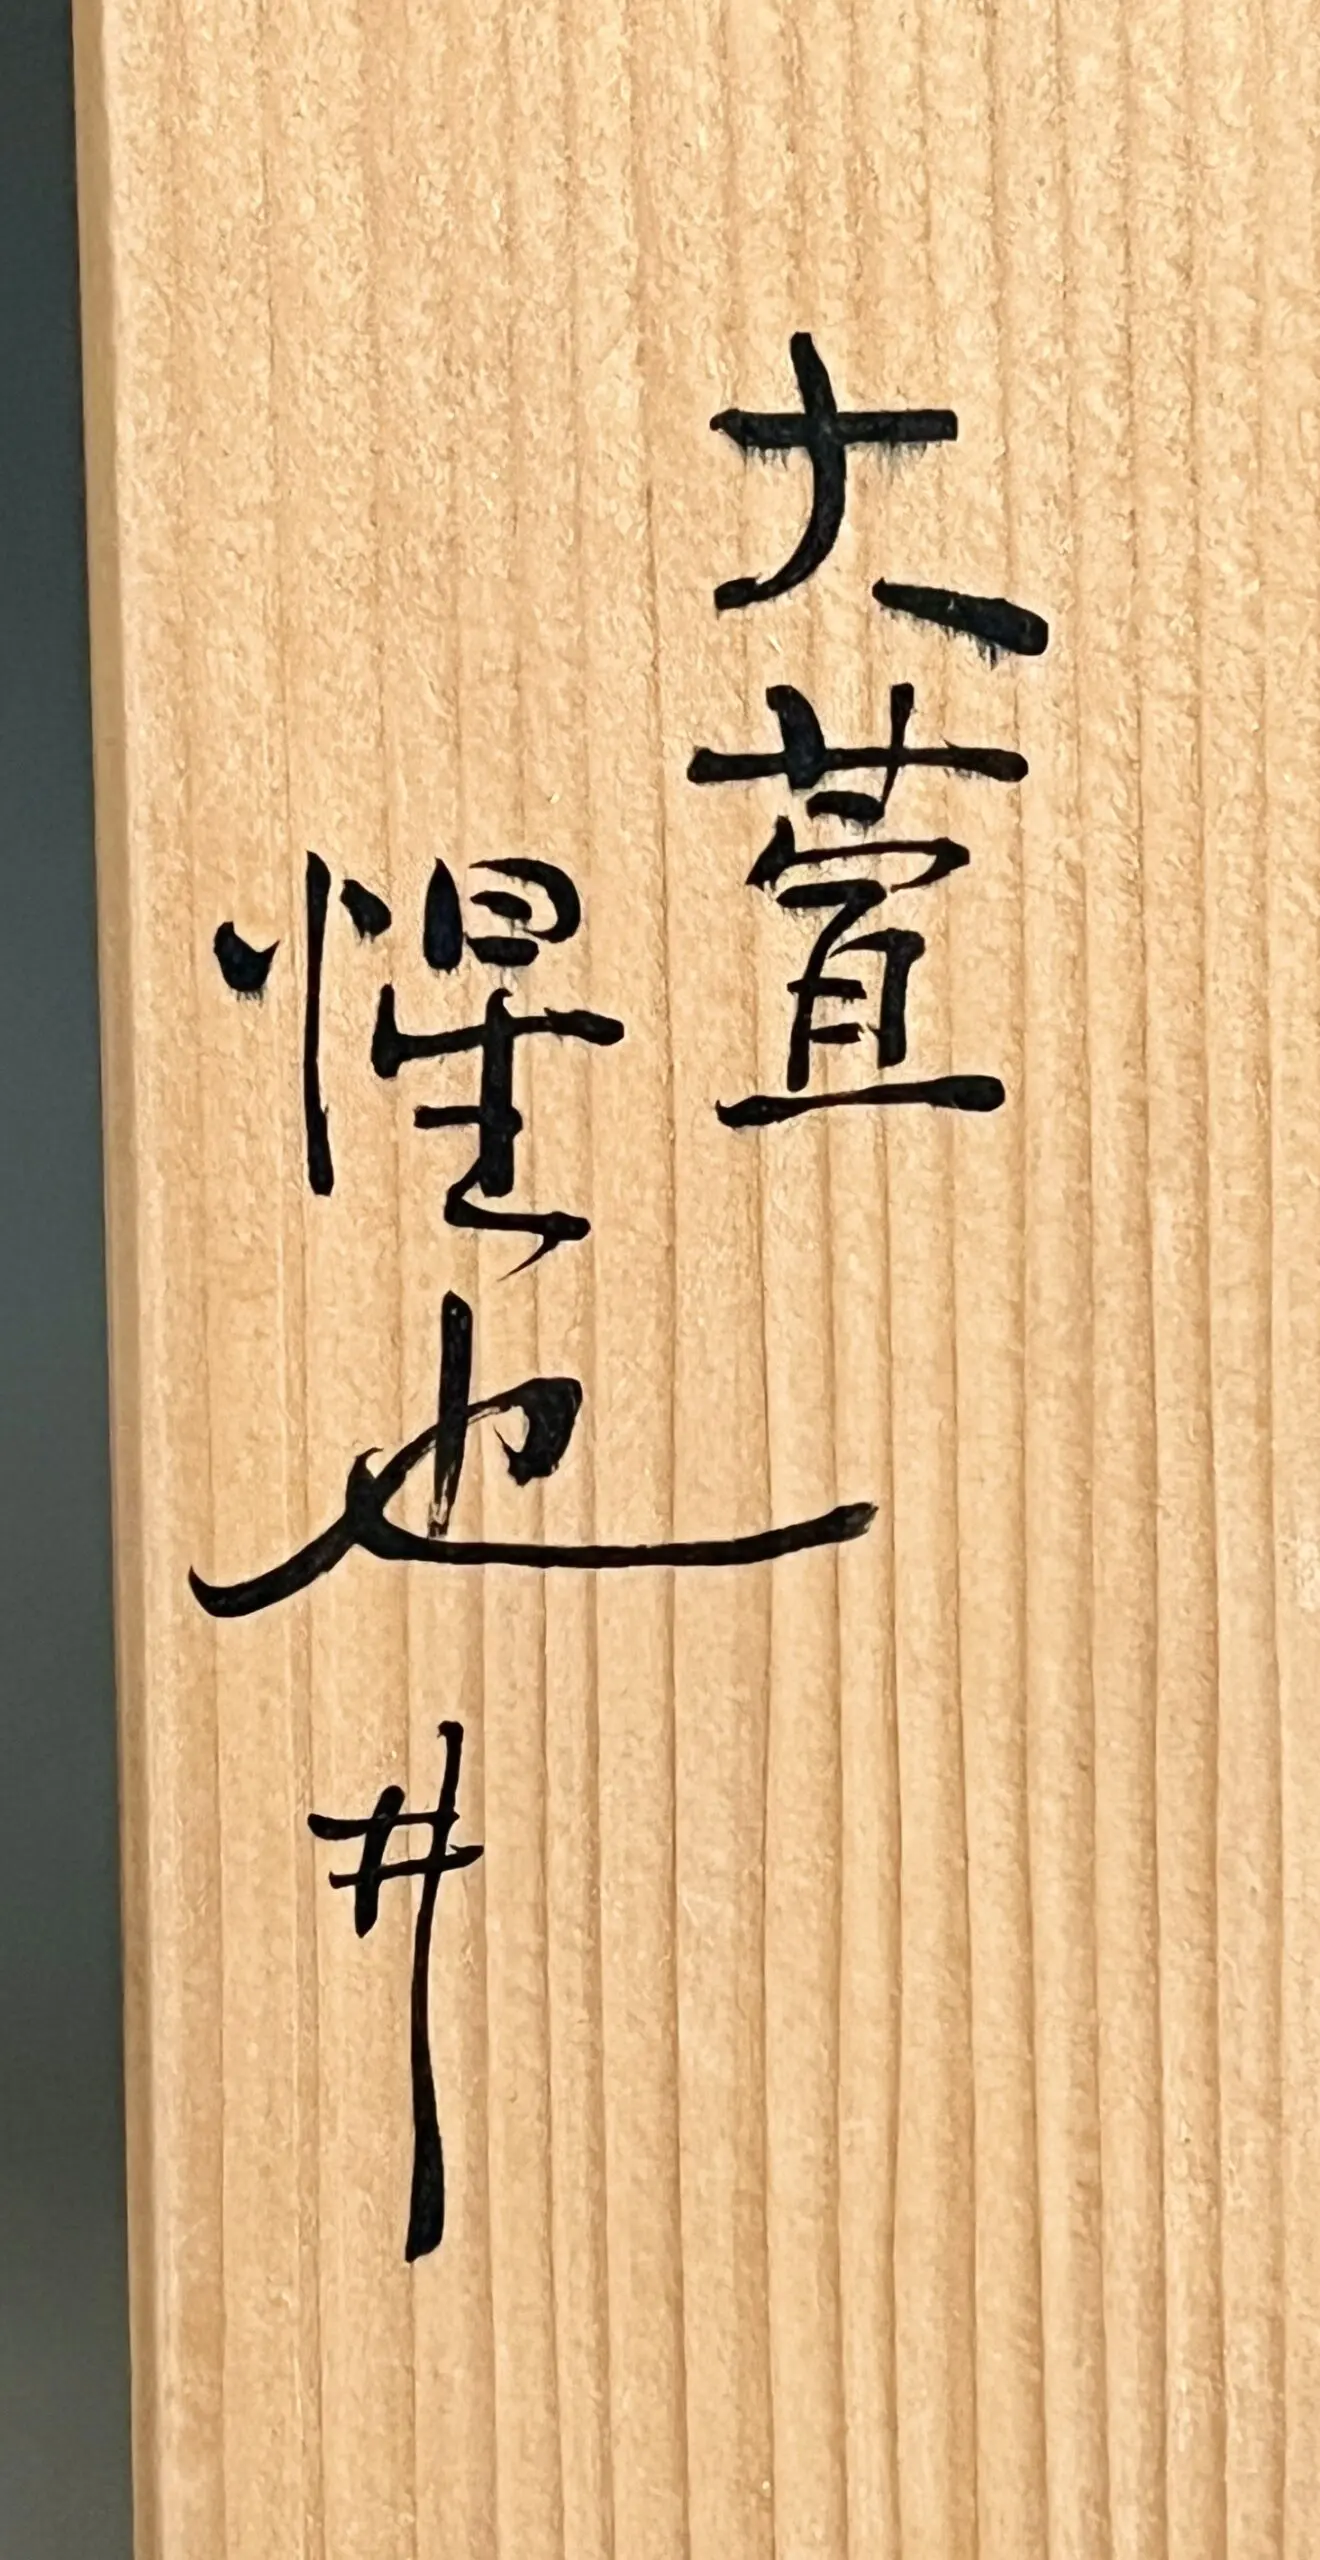 大萱
惺也 井